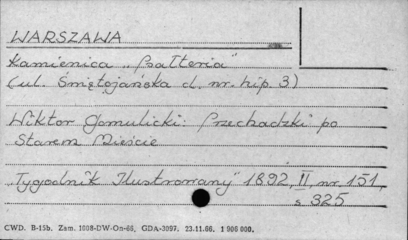 WARSZAWA
Kamienica „Balteria"
(ul. Świętojańska d. nr. hip. 3)
Wiktor Gomulicki: Przechadzki po
Starem Mieście
„Tygodnik Ilustrowany" 1892, II, nr 151,
s 325
CWD. B-15b. Zam. 1008-DW-On-66, GDA-3097. 23.11.66. 1 900 000.